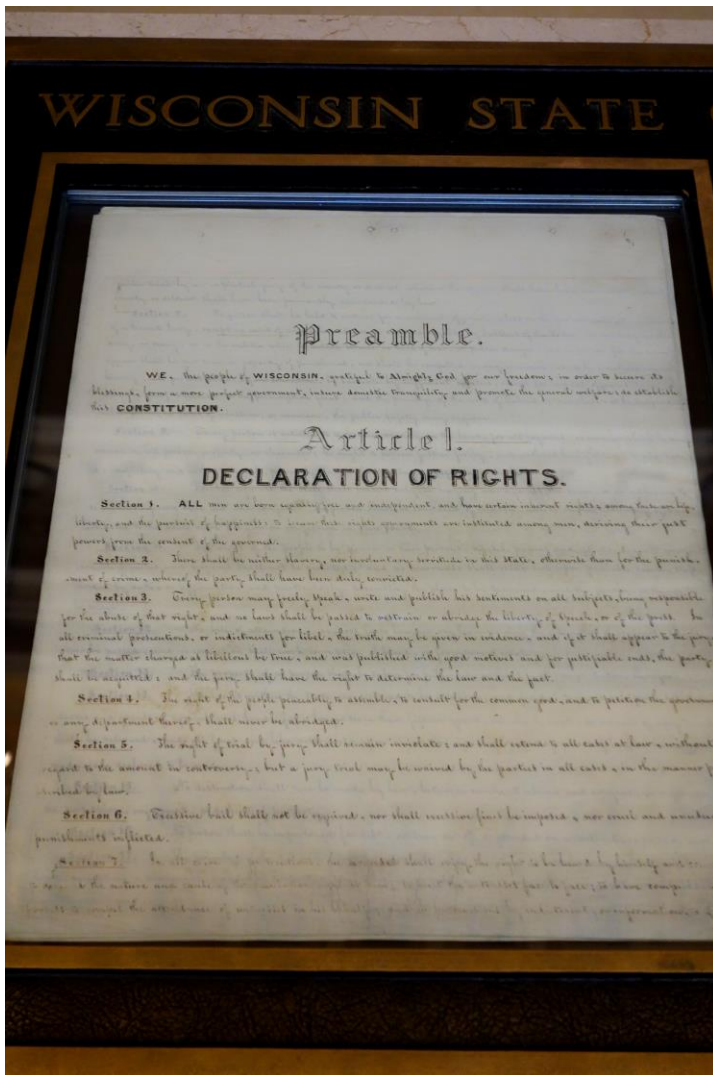 WISCONSIN STATE
Preamble.
WE, the people of WISCONSIN, grateful to Almighty God for our freedom; in order to secure its
blessings, form a more perfect government, insure domestic tranquility and promote the general welfare; do establish
this CONSTITUTION.
Article 1.
DECLARATION OF RIGHTS.
Section 1. ALL men are born equally free and independent, and have certain inherent rights; among these are life,
liberty, and the pursuit of happiness: to secure these rights governments are instituted among men, deriving their just
powers from the consent of the governed.
Section 2. There shall be neither slavery, nor involuntary servitude in this state, otherwise than for the punish-
-ment of crime, whereof the party shall have been duly convicted.
Section 3. Every person may freely speak, write and publish his sentiments on all subjects, being responsible
for the abuse of that right, and no laws shall be passed to restrain or abridge the liberty of speech, or of the press. In
all criminal prosecutions, or indictments for libel, the truth may be given in evidence, and if it shall appear to the jury
that the matter charged as libellous be true, and was published with good motives and for justifiable ends, the party
shall be acquitted; and the jury shall have the right to determine the law and the fact.
Section 4. The right of the people peaceably to assemble, to consult for the common good, and to petition the governm
or any department thereof, shall never be abridged.
Section 5. The right of trial by jury shall remain inviolate; and shall extend to all cases at law, without
regard to the amount in controversy; but a jury trial may be waived by the parties in all cases, in the manner p
scribed by law.
Section 6. Excessive bail shall not be required, nor shall excessive fines be imposed, nor cruel and unusual
punishments inflicted.
Section 7. In all criminal prosecutions, the accused shall enjoy the right to be heard by himself and
the nature and cause of the accusation against him; to meet the witnesses face to face; to have compul
to compel the attendance of witnesses in his behalf; and in prosecutions by indictment, or information,